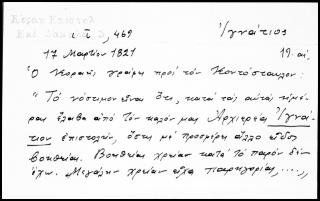 Κοραῆ Ἐπιστολ
τ. Γ, 469
Ἰγνάτιος
17 Μαρτίου 1821
19. αἰ.
Ὁ Κοραῆς γράφει πρὸς τὸν Κοντόσταυλον:
"Τὸ νόστιμον εἶναι ὅτι, κατὰ τὰς αὐτὰς ἡμέ-
ρας ἔλαβα ἀπὸ τὸν καλόν μας Ἀρχιερέα Ἰγνά-
τιον ἐπιστολήν, ὅστις μὲ προσφέρει ἄλλο εἶδος
βοηθείας. Βοηθείας χρείαν κατὰ τὸ παρὸν δὲν
ἔχω. Μεγάλην χρείαν εἶχα παρηγορίας,....,